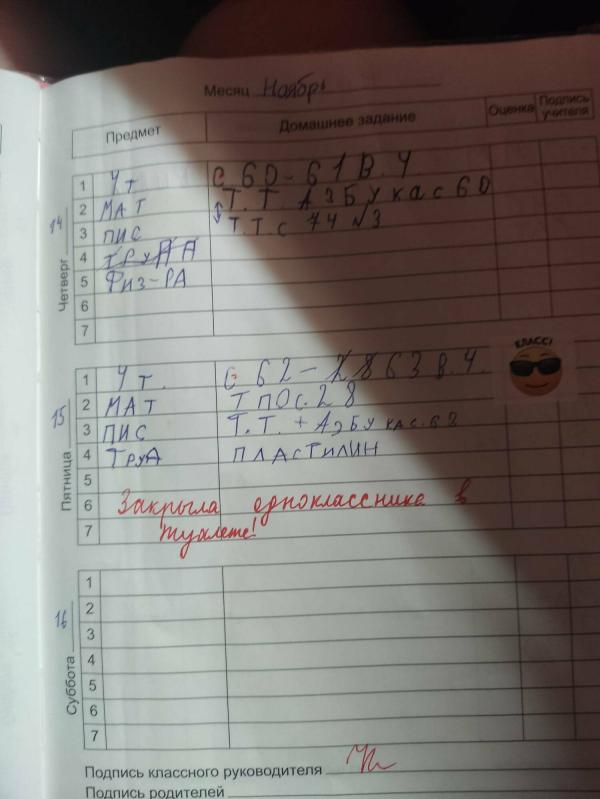 Месяц Ноябрь
Предмет Домашнее задание Оценка Подпись учителя
14 Четверг
1 ЧТ С 60-61 В.Ч
2 МАТ Т.Т. АЗБУКА С 60
3 ПИС Т.Т С 74 №3
4 ТРУДА
5 ФИЗ-РА
6
7
КЛАСС!
15 Пятница
1 ЧТ. С 62- 63 В.Ч.
2 МАТ Т ПО С. 28
3 ПИС Т.Т. + АЗБУКА С. 62
4 ТРУА ПЛАСТИЛИН
5
6 Закрыла одноклассника в
7 туалете!
16 Суббота
1
2
3
4
5
6
7
Подпись классного руководителя
Подпись родителей